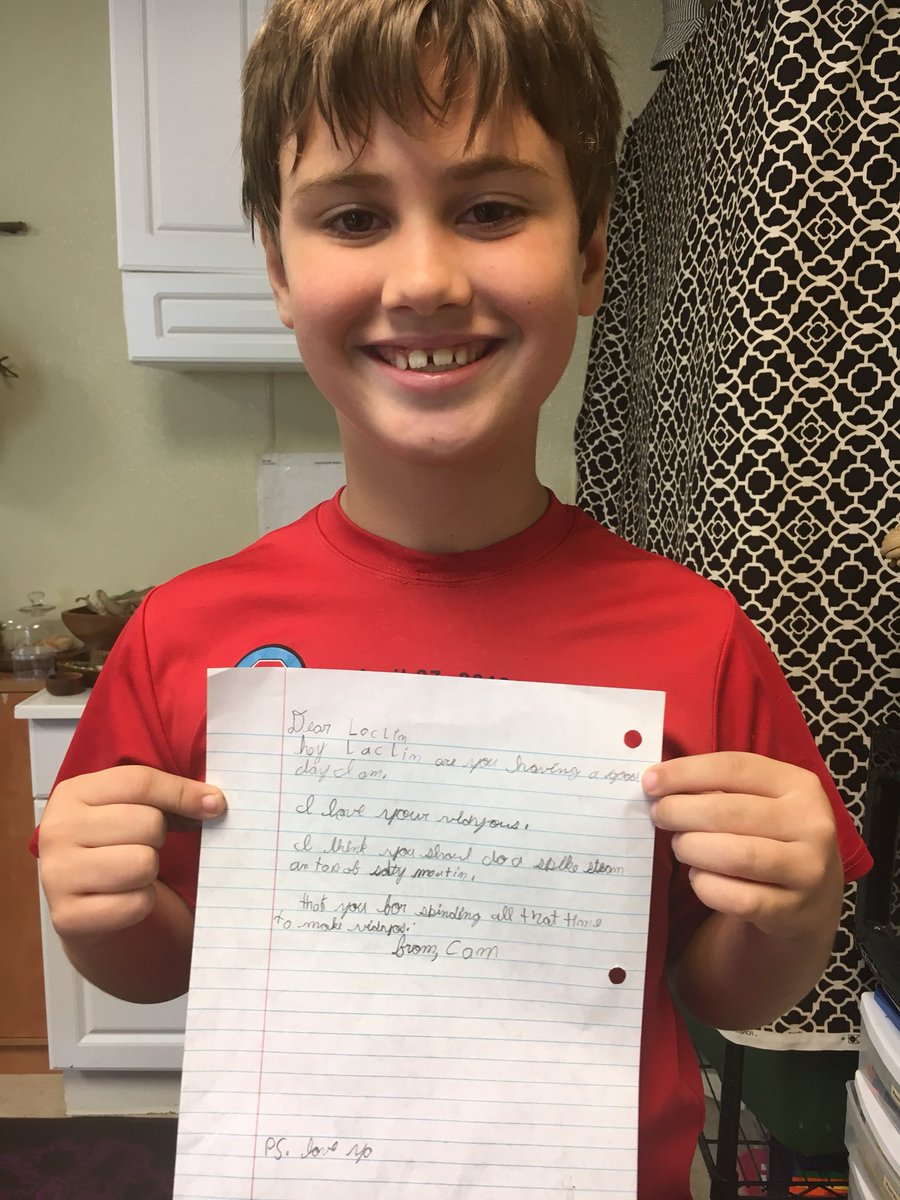 Dear Laclin
hey Laclin are you having a good
day I am.
I love your vidyous.
I think you shoud do a spike steam
on top of salty montin.
that you for spinding all that time
to make vidyos.
from, Cam
PS. love yo